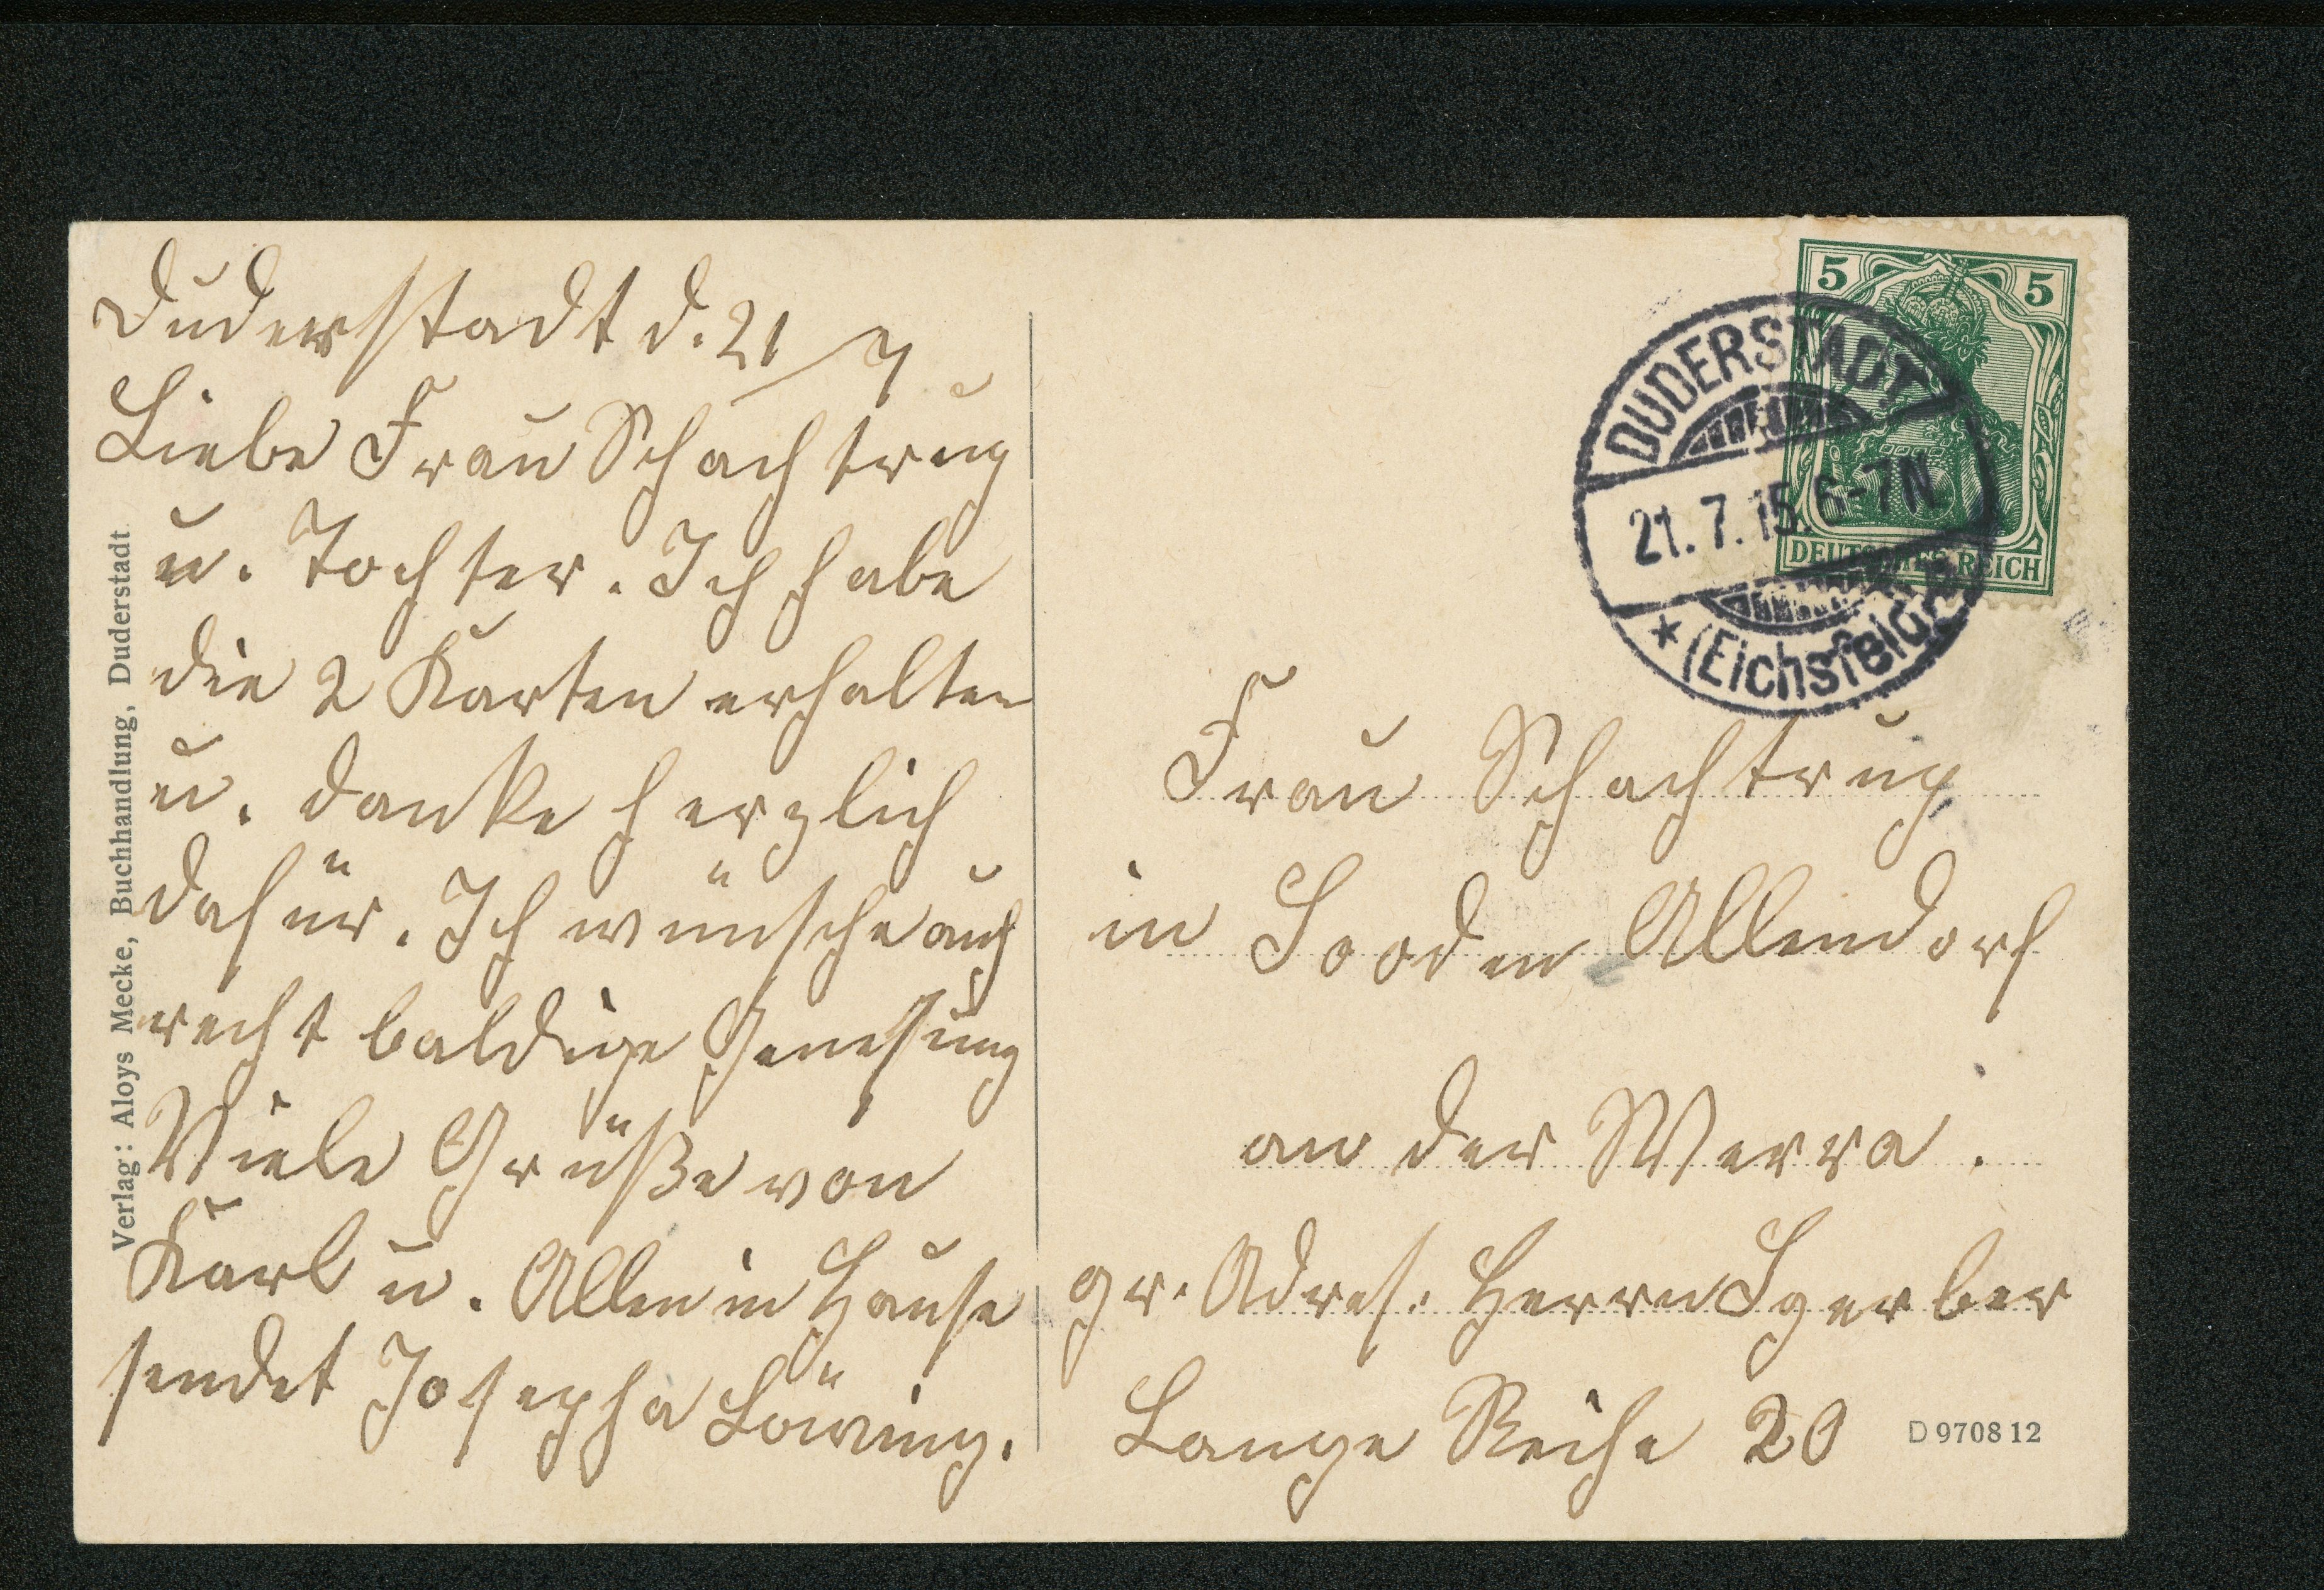 Duderstadt d. 21/7
Liebe Frau Schachtrup
u. Tochter. Ich habe
die 2 Karten erhalten
u. danke herzlich
dafür. Ich wünsche auch
recht baldige Genesung
Viele Grüße von
Karl u. Allen in Hause
sendet Josepha Löwing.
Verlag: Aloys Mecke, Buchhandlung, Duderstadt
5 5
DEUTSCHES REICH
DUDERSTADT
21.7.15. 6-7N
* (Eichsfeld)
Frau Schachtrup
in Sooden Allendorf
an der Werra.
gr. Adres. Herrn
Lange Reihe 20
D 9708 12